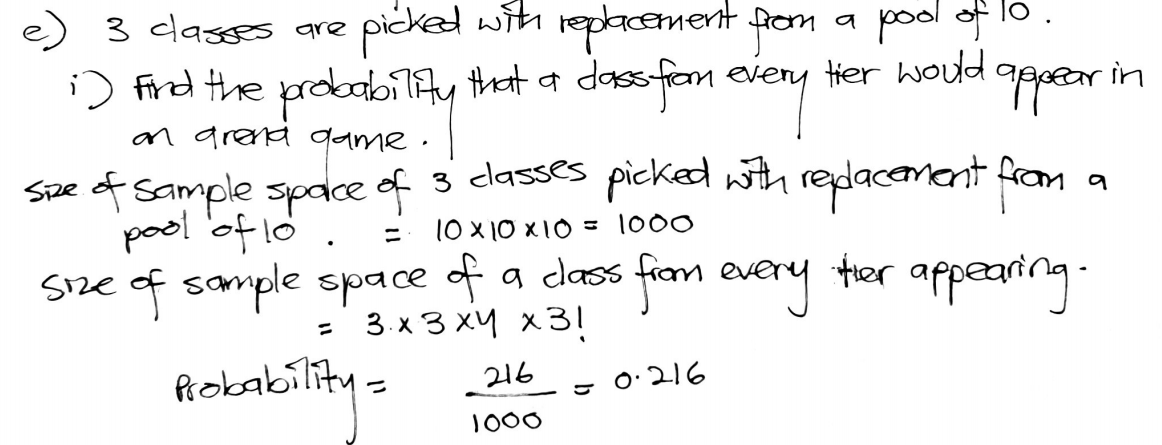 e) 3 classes are picked with replacement from a pool of 10.
i) Find the probability that a class from every tier would appear in
an arena game.
Size of sample space of 3 classes picked with replacement from a
pool of 10. = 10 x 10 x 10 = 1000
Size of sample space of a class from every tier appearing.
= 3 x 3 x 4 x 3!
Probability = 216/1000 = 0.216